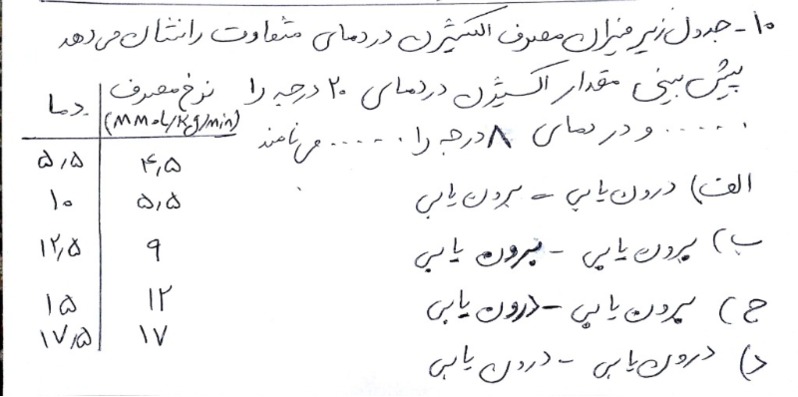 ۱۰- جدول زیر میزان مصرف اکسیژن در دمای متفاوت را نشان می دهد
پیش بینی مقدار اکسیژن در دمای ۲۰ درجه را
..... و در دمای ۸ درجه را ..... می نامند
الف) درون یابی - برون یابی
ب) برون یابی - برون یابی
ج) برون یابی - درون یابی
د) درون یابی - درون یابی
دما نرخ مصرف
(MMol/Kg/min)
۵,۵ ۴,۵
۱۰ ۵,۵
۱۲,۵ ۹
۱۵ ۱۲
۱۷,۵ ۱۷